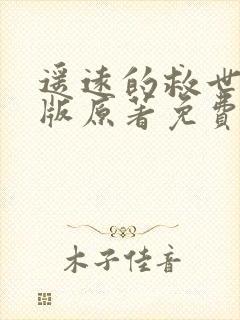 遥远的救世
版原著免费
木子佳音